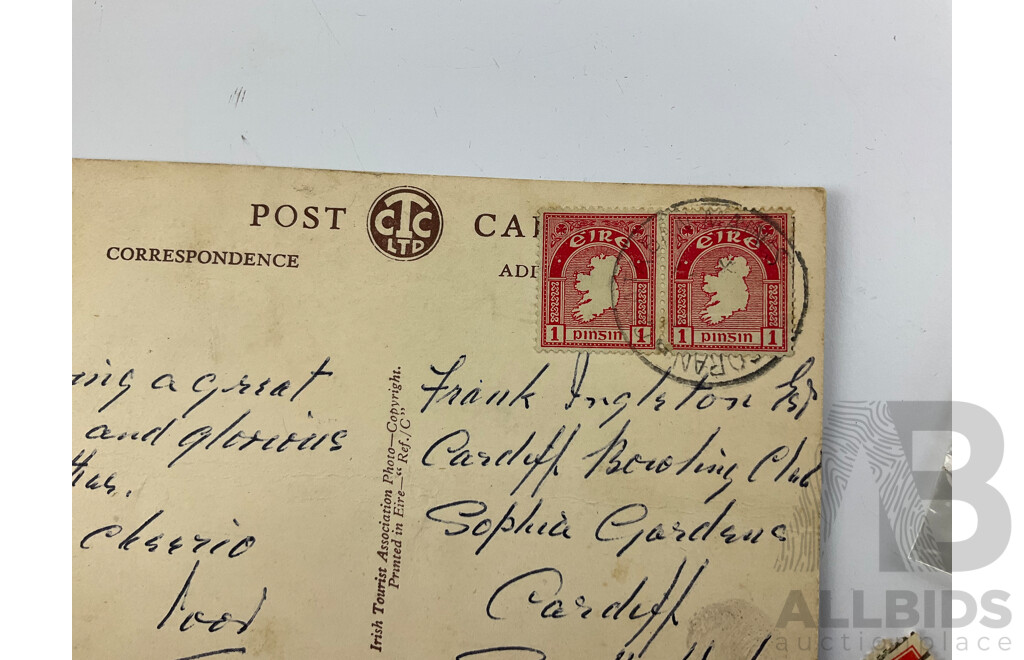 POST CTC LTD CAR
CORRESPONDENCE
ADD
EIRE EIRE
1 pinsin 1 1 pinsin 1
ORAN
ing a great
and glorious
cheerio
Irish Tourist Association Photo—Copyright.
Printed in Eire—“ Ref./C”
Frank Ingleton Esq
Cardiff Bowling Club
Sophia Gardens
Cardiff
AB
ALLBIDS
auction place